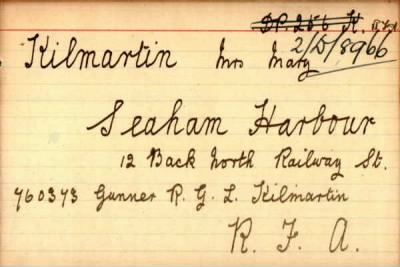 DP. 256 K.
2/D/8966
Kilmartin Mrs Mary
Seaham Harbour
12 Back North Railway St.
760373 Gunner R. G. L. Kilmartin
R. F. A.